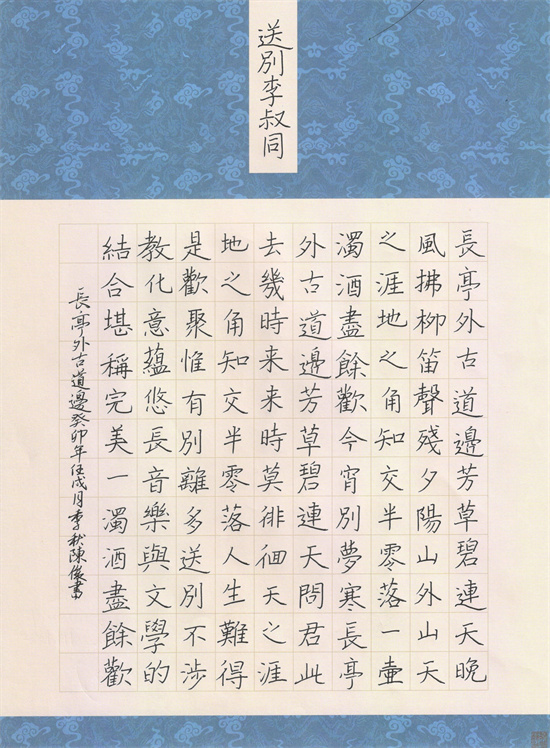 送別李叔同
長亭外古道邊芳草碧連天晚
風拂柳笛聲殘夕陽山外山天
之涯地之角知交半零落一壺
濁酒盡餘歡今宵別夢寒長亭
外古道邊芳草碧連天問君此
去幾時来来時莫徘徊天之涯
地之角知交半零落人生難得
是歡聚惟有別離多送別不涉
教化意蘊悠長音樂與文學的
結合堪稱完美一濁酒盡餘歡
長亭外古道邊癸卯年任戌月季秋陳俊書